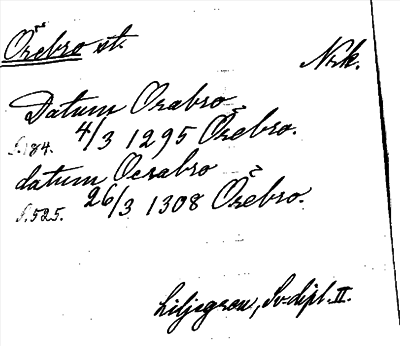 Örebro st.
Nrk.
Datum Orabro
s. 184. 4/3 1295 Örebro.
datum Oerabro
s. 525. 26/3 1308 Örebro.
Liljegren, Sv. dipl. II.